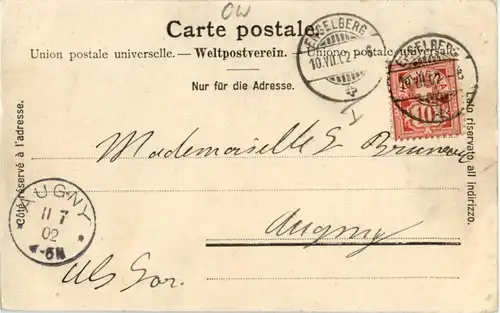 OW
Carte postale.
Union postale universelle. — Weltpostverein. — Unione postale universale
Nur für die Adresse.
ENGELBERG
10.VII.02
ENGELBERG
10.VII.02
10
Côté réservé à l'adresse.
Lato riservato all indirizzo.
Mademoiselle
Augny
AUGNY
11 7
02
4-5N
Als Lor.